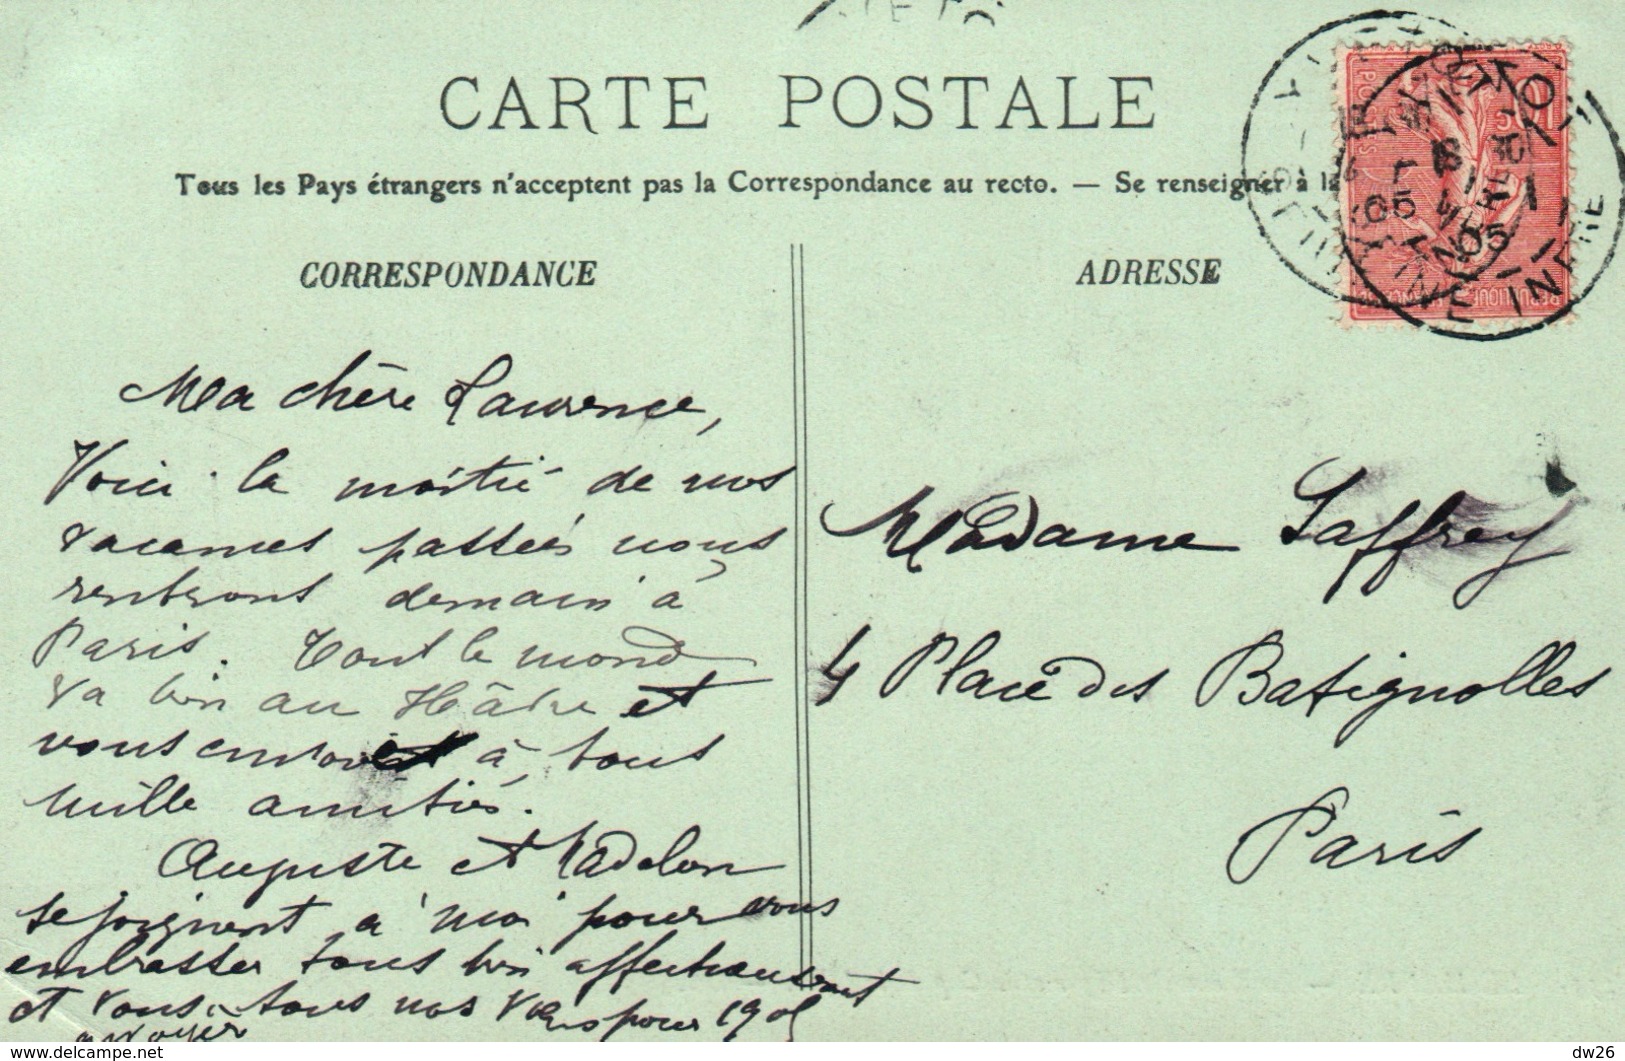 CARTE POSTALE
Tous les Pays étrangers n'acceptent pas la Correspondance au recto. — Se renseigner à la
CORRESPONDANCE
ADRESSE
Ma chère Laurence,
Voici la moitié de nos
vacances passées nous
rentrons demain à
Paris. Tout le monde
va bien au Hâvre et
vous envoient à tous
mille amitiés.
Auguste et Madelon
se joignent à moi pour vous
embrasser tous bien affectueusement
et vous envoyer tous nos vœux pour 1905
Madame Jaffrey
4 Place des Batignolles
Paris
POSTES
10c
REPUBLIQUE FRANÇAISE
05
05
INFRE
delcampe.net
dw26